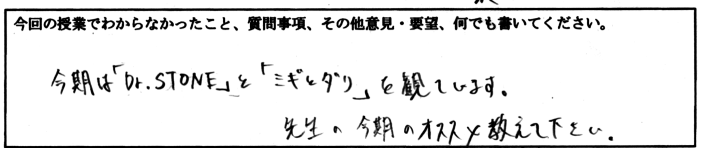 今回の授業でわからなかったこと、質問事項、その他意見・要望、何でも書いてください。
今期は「Dr.STONE」と「ミギとダリ」を観ています。
先生の今期のオススメ教えて下さい。